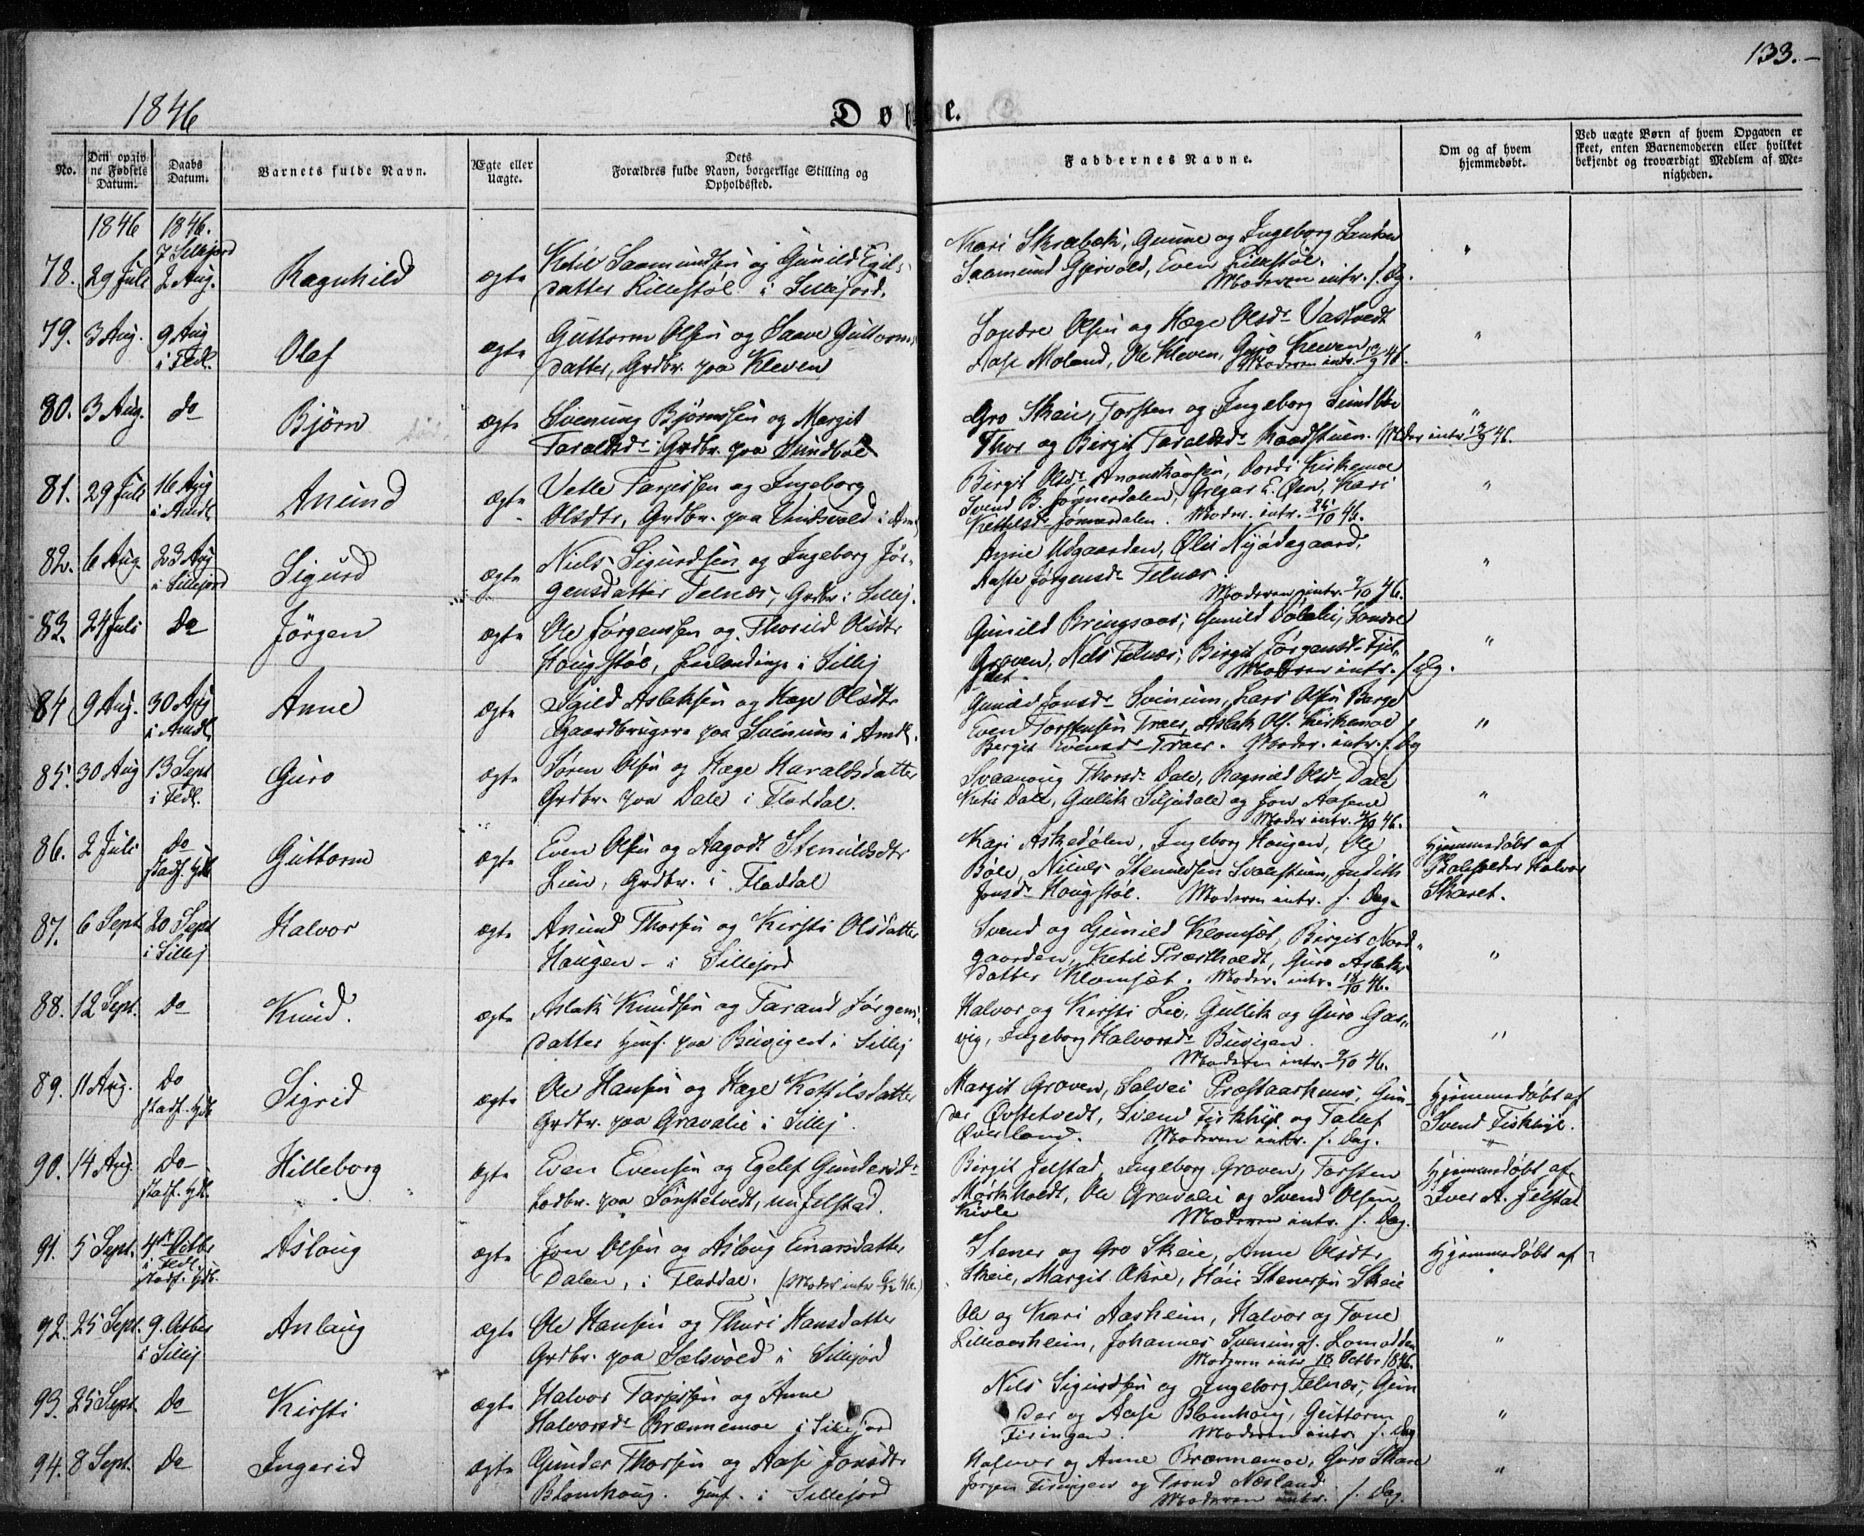 133.-
1846
Døbte.
No.
Den opgivne Fødsels Datum.
Daabs Datum.
Barnets fulde Navn.
Ægte eller Uægte.
Dets Forældres fulde Navn, borgerlige Stilling og Opholdssted.
Faddernes Navne.
Om og af hvem hjemmedøbt.
Ved uægte Børn af hvem Opgaven er skeet, enten Barnemoderen eller hvilket bekjendt og troværdigt Medlem af Menigheden.
1846 1846.
i Sillejord
78. 29 Juli 2 Aug. Ragnhild ægte Ketil Saamundsen og Gunild Egils-
datter Lillestøl i Sillejord.
Kari Skrabek, Gunne og Ingeborg
Saamund Gjervold, Even Lillestøl.
Moderen intr. s. Dg.
79. 3 Aug. 9 Aug i Fldl. Olaf ægte Guttorm Olsen og Saave Guttorms
datter, Grdbr. paa Kleven
Sondre Olsen og Hæge Olsdr Vastvedt
Aase Moland, Ole Kleven, Guro Kleven
Moderen intr. 13/9 46.
80. 3 Aug. Do Bjørn ægte Svenung Bjørnsen og Margit
Taraldsdr Grdbr. paa Sundbøe
Gro Skeie, Torsten og Ingeborg Sundbøe
Thor og Birgit Taraldsdr Raadstuen. Moder intr 13/9 46.
81. 29 Juli 16 Aug i Amdl. Anund ægte Vetle Tarjessen og Ingeborg
Olsdtr, Grdbr. paa Undsvold i Am
Birgit Olsdr Kirkemoe
Svend B. Jørnerdalen, Gregar E. Øen, Kari
Kettilsdr Jønnerdalen. Moder. intr. 46.
82. 6 Aug. 23 Aug i Sillejord Sigurd ægte Niels Sigurdsen og Ingeborg Jør-
gensdatter Felnæs, Grdbr. i Sillej.
Anne Utgaarden, Ølei Nyødegaard.
Aaste Jørgensdr Telnæs.
Moderen intr. 9/10 46.
83. 24 Juli Do Jørgen ægte Ole Jørgensen og Thorild Olsdtr
Haugstøl, i Sillej
Gunild Bringsaas, Gunild Dølalie, Sondre
Groven, Nels Telnæs, Birgit Jørgensdr
Moderen intr. s. Dg.
84 9 Aug. 30 Aug i Amdl. Anne ægte Egild Aslaksen og Hæge Olsdtr
Gaardbrugere paa Svinum i Amdl.
Gunild Jonsdr Svinum, Lars Olsen Berge
Even Torstensen Traer, Aslak Ols. Kirkemoe
Bergit Evensdr Traer. Moder. intr. s. Dg
85. 30 Aug 13 Sept i Fldl. Guro ægte Søren Olsen og Hæge Haraldsdatter
Grdbr. paa Dale i Fladdal.
Svaanoug Thorsdr Dale, Ragnild Olsdr Dale
Ketil Dale, Gullik Siljudale og Jon Aasene
Moder intr. 46.
86. 2 Juli Do stadf. hjdt Guttorm ægte Even Olsen og Aagodt Stenulsdtr
Lien, Grdbr. i Fladdal
Kari Askedalen, Ingeborg Haugen, Ole
Bøle, Nicuds Stenulsen Svalestuen, Judith
Jonsdr Haugstøl. Moderen intr. s. Dag.
Hjemmedøbt af
Skoleholder Halvor
Skaret.
87. 6 Sept. 20 Sept i Sillej Halvor ægte Anund Thorsen og Kirsti Olsdatter
Haugen - i Sillejord
Svend og Gunild Klomset, Birgit Nord-
gaarden, Ketil Præstholdt, Guro Aslaks-
datter Klomset. Moder. intr. 18/10 46.
88. 12 Sept. Do Knud. ægte Aslak Knudsen og Tarand Jørgens-
datter Husf. paa Buvigen i Sillej
Halvor og Kirsti Lie, Gullik og Guro Gar-
vig, Ingeborg Halvorsdr Buvigen.
Moderen intr. 9/10 46.
89. 11 Aug. Do stadf. hjdt Sigrid ægte Ole Hansen og Hæge Kettilsdatter
Grdbr. paa Gravalie i Sillej.
Margit Groven, Salvei Præstaarhuus, Gun-
der Øvstetvedt, Svend Fiskhijl og Tallef
Øverland. Moderen intr. s. Dag.
Hjemmedøbt af
Svend Fiskhijl.
90. 14 Aug. Do stadf. hjd. Hilleborg ægte Even Evensen og Egelef Gundersdr
Lodbr. paa Sønstetvedt, nu Jelstad.
Birgit Jelstad, Ingeborg Groven, Torsten
Mørkholdt, Ole Gravalie og Svend Olsen
Kivle Moderen intr. s. Dag.
Hjemmedøbt af
Iver A. Jelstad
91. 5 Sept. 4de Octbr i Fldl. stadf. hjdt. Aslaug ægte Jon Olsen og Aslaug Einarsdatter
Dalen, i Fladdal. (Moder intr 46.)
Stener og Gro Skeie, Anne Olsdtr
Skeie, Margit Okre, Høie Stenersen Skeie
Hjemmedøbt af
92. 25 Sept. 9. Octbr i Sillej Anlaug ægte Ole Hansen og Thuri Hansdatter
Grdbr. paa Sælsvold i Sillejord
Ole og Kari Aasheim, Halvor og Tone
Lilleaasheim, Johannes Svenungs. Lomodden
Moderen intr 18 Octbr 1846.
93. 25 Sept Do Kirsti ægte Halvor Tarjessen og Anne
Halvorsdr Brænnemoe i Sillejord
Nils Sigurdsen og Ingeborg Telnæs, Gun
der og Aase Blomhaug, Guttorm
Firingen. Moderen intr. s. Dag
94. 8 Sept. Do Ingerid ægte Gunder Thorsen og Aase Jonsdtr
Blomhaug. Husf. i Sillejord
og Anne Brænnemoe, Guro Skare
Jørgen Firingen og Trond Næsland
Moderen intr. s. Dag.